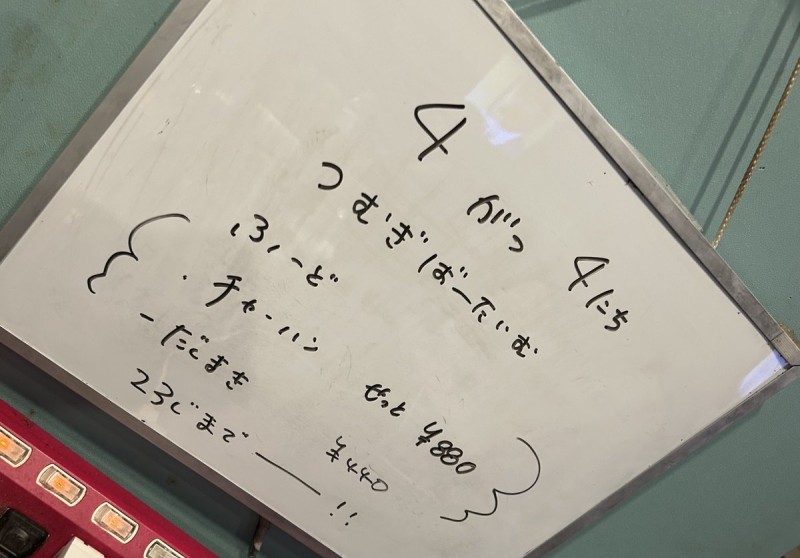 4がつ 4にち
つむぎばーたいむ
ふーど
・チャーハン せっと ¥880
-だしまき ¥440
23じまで ― !!